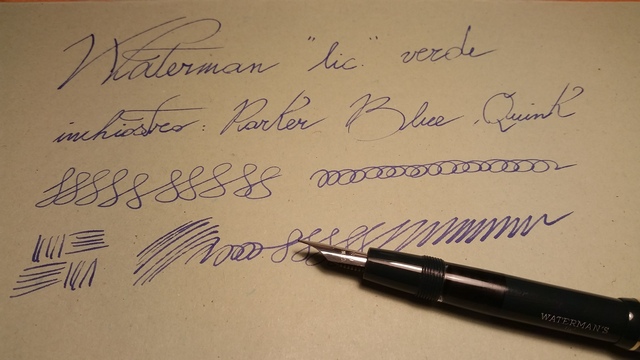 Waterman "lic." verde
inchiostro: Parker Blue Quink
WATERMAN'S